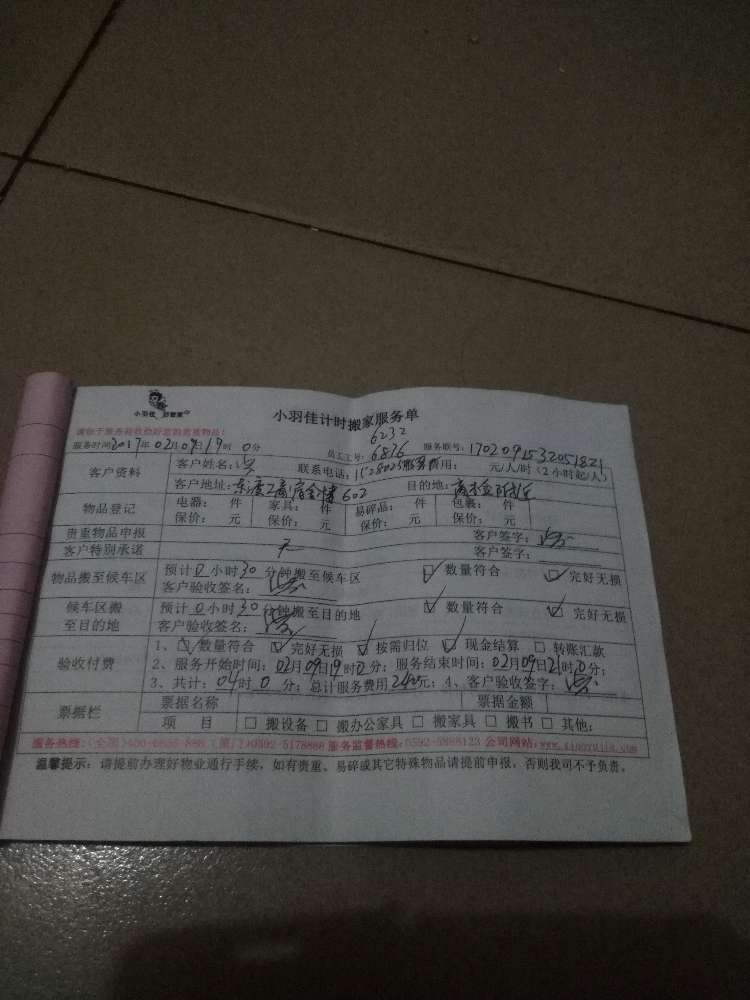 小羽佳 好管家
小羽佳计时搬家服务单
请你于服务前收拾好您的贵重物品!
6232
服务时间2017年02月09日19时0分 员工工号: 6876 服务联号: 1702091532051821
客户资料 客户姓名: 联系电话: 服务费用: 元/人/时(2小时起/人)
客户地址: 602 目的地:
物品登记 电器: 件 家具: 件 易碎品: 件 包裹: 件
保价: 元 保价: 元 保价: 元 保价: 元
贵重物品申报 客户签字:
客户特别承诺 无 客户签字:
物品搬至候车区 预计0小时30分钟搬至候车区 数量符合 完好无损
客户验收签名:
候车区搬至目的地 预计0小时30分钟搬至目的地 数量符合 完好无损
客户验收签名:
验收付费 1、数量符合 完好无损 按需归位 现金结算 转账汇款
2、服务开始时间: 02月09日19时0分; 服务结束时间: 02月09日21时0分;
3、共计: 04时0分; 总计服务费用240元; 4、客户验收签字:
票据栏 票据名称 票据金额
项 目 搬设备 搬办公家具 搬家具 搬书 其他:
服务热线: (全国)400-6835-888 (厦门)0592-5178888 服务监督热线: 0592-5888123 公司网站:
温馨提示: 请提前办理好物业通行手续, 如有贵重、易碎或其它特殊物品请提前申报, 否则我司不予负责。